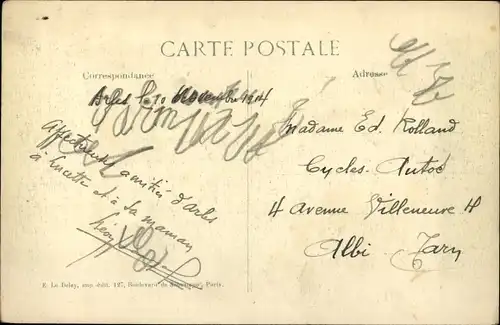 CARTE POSTALE
Correspondance
Adresse
Arles le 10 Novembre 1914
Affectueuse amitié d'Arles
à Lucette et à sa maman
Madame Ed. Rolland
Cycles-Autos
4 Avenue Villeneuve 4
Albi Tarn
E. Le Deley, imp. édit. 127, Boulevard de Sébastopol, Paris.